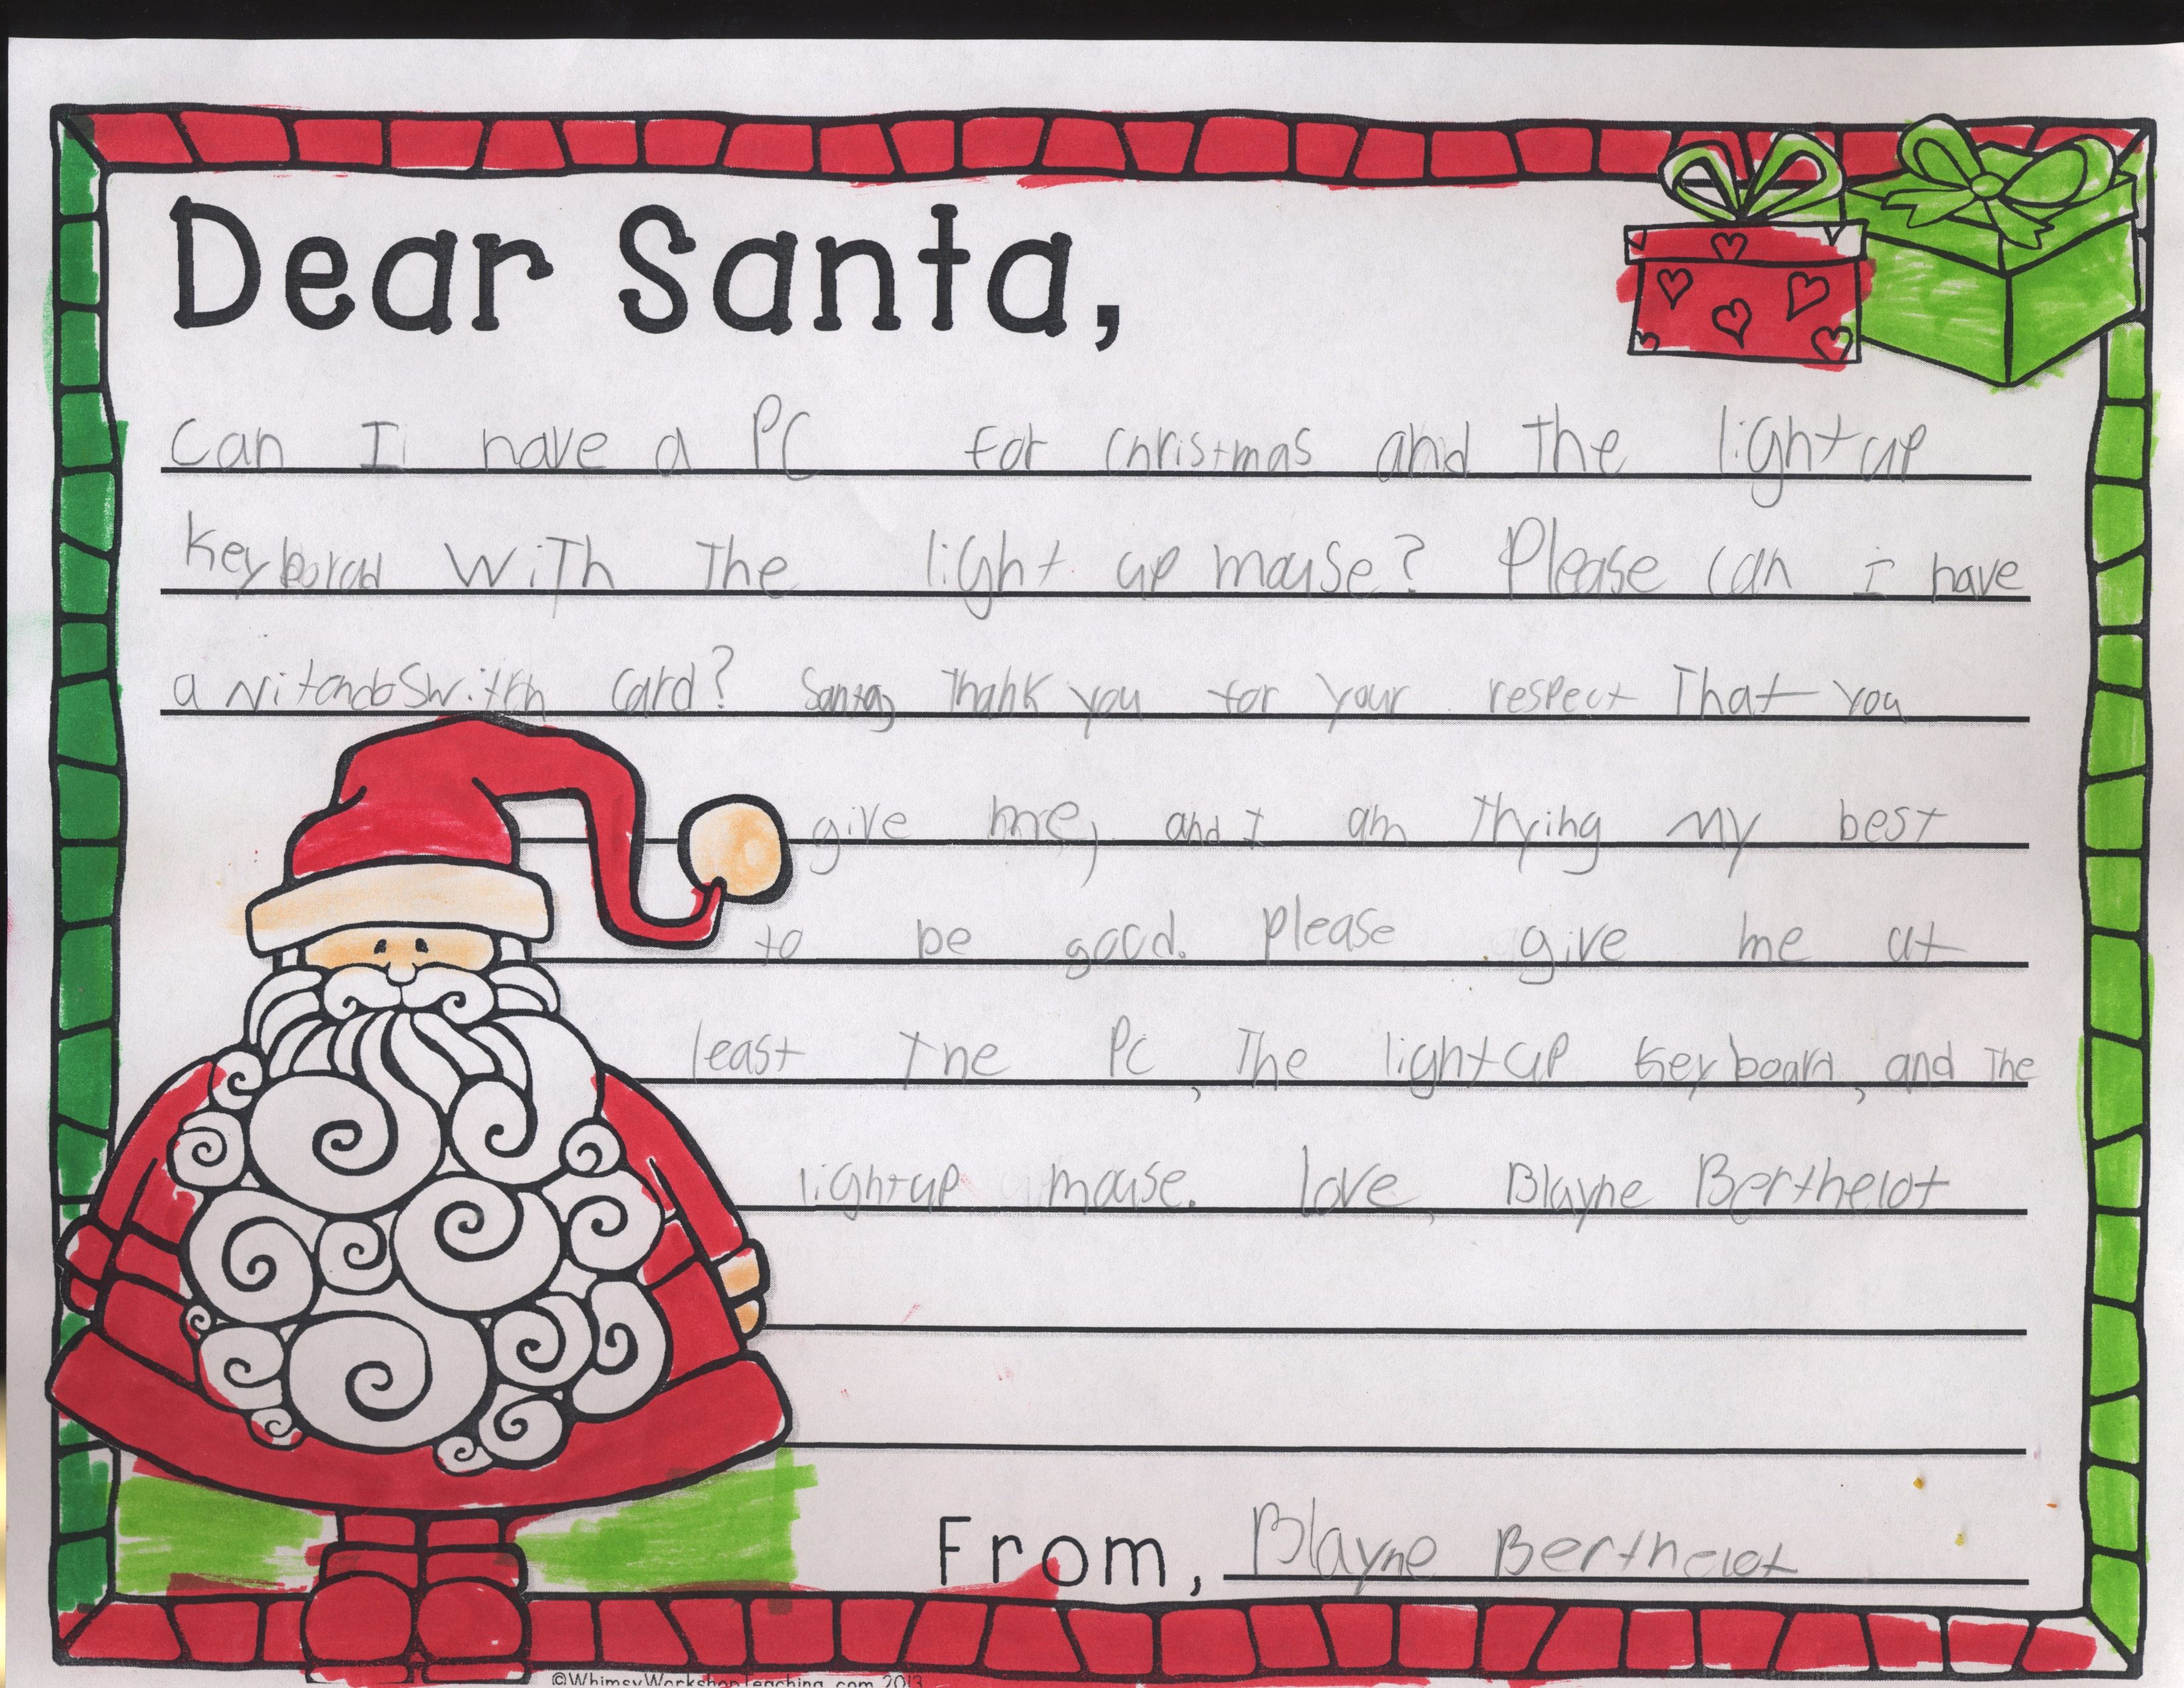 Dear Santa,
Can I have a PC for christmas and the light up
Keyborad with the light up mouse? Please can i have
a Nitondo Switch card? Santa, Thank you for your respect That you
give me, and I am trying my best
to be good. Please give me at
least the PC, The light up Keyboard, and The
light up mouse. love, Blayne Berthelot
From, Blayne Berthelot
©WhimsyWorkshopTeaching.com 2013